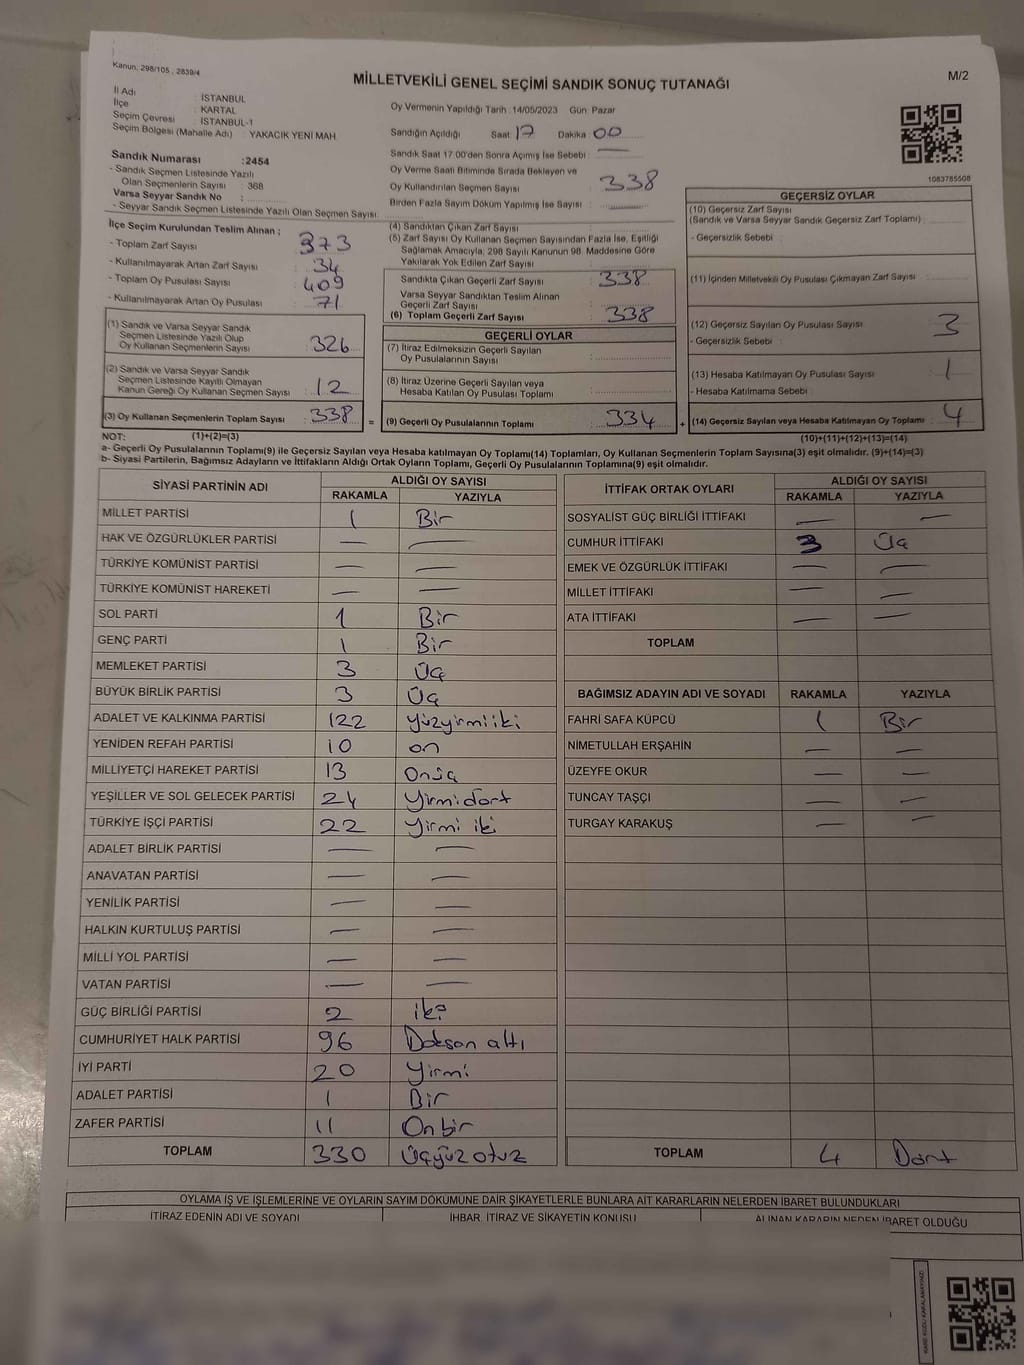 Kanun. 298/105 , 2839/4
MİLLETVEKİLİ GENEL SEÇİMİ SANDIK SONUÇ TUTANAĞI
M/2
İl Adı : İSTANBUL
İlçe : KARTAL
Seçim Çevresi : İSTANBUL-1
Seçim Bölgesi (Mahalle Adı) : YAKACIK YENİ MAH
Oy Vermenin Yapıldığı Tarih : 14/05/2023 Gün: Pazar
Sandığın Açıldığı Saat 17 Dakika 00
Sandık Saat 17:00'den Sonra Açımış İse Sebebi : —
Oy Verme Saati Bitiminde Sırada Bekleyen ve
Oy Kullandırılan Seçmen Sayısı : 338
Birden Fazla Sayım Döküm Yapılmış İse Sayısı :
1083785508
Sandık Numarası : 2454
- Sandık Seçmen Listesinde Yazılı
Olan Seçmenlerin Sayısı : 368
Varsa Seyyar Sandık No :
- Seyyar Sandık Seçmen Listesinde Yazılı Olan Seçmen Sayısı:
İlçe Seçim Kurulundan Teslim Alınan ;
- Toplam Zarf Sayısı : 373
- Kullanılmayarak Artan Zarf Sayısı : 34
- Toplam Oy Pusulası Sayısı : 409
- Kullanılmayarak Artan Oy Pusulası : 71
(1) Sandık ve Varsa Seyyar Sandık
Seçmen Listesinde Yazılı Olup
Oy Kullanan Seçmenlerin Sayısı : 326
(2) Sandık ve Varsa Seyyar Sandık
Seçmen Listesinde Kayıtlı Olmayan
Kanun Gereği Oy Kullanan Seçmen Sayısı : 12
(3) Oy Kullanan Seçmenlerin Toplam Sayısı : 338 =
(4) Sandıktan Çıkan Zarf Sayısı :
(5) Zarf Sayısı Oy Kullanan Seçmen Sayısından Fazla İse, Eşitliği
Sağlamak Amacıyla; 298 Sayılı Kanunun 98. Maddesine Göre
Yakılarak Yok Edilen Zarf Sayısı :
Sandıkta Çıkan Geçerli Zarf Sayısı : 338
Varsa Seyyar Sandıktan Teslim Alınan
Geçerli Zarf Sayısı :
(6) Toplam Geçerli Zarf Sayısı : 338
GEÇERLİ OYLAR
(7) İtiraz Edilmeksizin Geçerli Sayılan
Oy Pusulalarının Sayısı :
(8) İtiraz Üzerine Geçerli Sayılan veya
Hesaba Katılan Oy Pusulası Toplamı :
(9) Geçerli Oy Pusulalarının Toplamı : 334 +
GEÇERSİZ OYLAR
(10) Geçersiz Zarf Sayısı
(Sandık ve Varsa Seyyar Sandık Geçersiz Zarf Toplamı) :
- Geçersizlik Sebebi :
(11) İçinden Milletvekili Oy Pusulası Çıkmayan Zarf Sayısı :
(12) Geçersiz Sayılan Oy Pusulası Sayısı : 3
- Geçersizlik Sebebi :
(13) Hesaba Katılmayan Oy Pusulası Sayısı : 1
- Hesaba Katılmama Sebebi :
(14) Geçersiz Sayılan veya Hesaba Katılmayan Oy Toplamı : 4
NOT: (1)+(2)=(3) (10)+(11)+(12)+(13)=(14)
a- Geçerli Oy Pusulalarının Toplamı(9) ile Geçersiz Sayılan veya Hesaba katılmayan Oy Toplamı(14) Toplamları, Oy Kullanan Seçmenlerin Toplam Sayısına(3) eşit olmalıdır. (9)+(14)=(3)
b- Siyasi Partilerin, Bağımsız Adayların ve İttifakların Aldığı Ortak Oyların Toplamı, Geçerli Oy Pusulalarının Toplamına(9) eşit olmalıdır.
SİYASİ PARTİNİN ADI ALDIĞI OY SAYISI
RAKAMLA YAZIYLA
MİLLET PARTİSİ 1 Bir
HAK VE ÖZGÜRLÜKLER PARTİSİ — —
TÜRKİYE KOMÜNİST PARTİSİ — —
TÜRKİYE KOMÜNİST HAREKETİ — —
SOL PARTİ 1 Bir
GENÇ PARTİ 1 Bir
MEMLEKET PARTİSİ 3 Üç
BÜYÜK BİRLİK PARTİSİ 3 Üç
ADALET VE KALKINMA PARTİSİ 122 yüzyirmiiki
YENİDEN REFAH PARTİSİ 10 on
MİLLİYETÇİ HAREKET PARTİSİ 13 Onüç
YEŞİLLER VE SOL GELECEK PARTİSİ 24 Yirmidört
TÜRKİYE İŞÇİ PARTİSİ 22 Yirmi iki
ADALET BİRLİK PARTİSİ — —
ANAVATAN PARTİSİ — —
YENİLİK PARTİSİ — —
HALKIN KURTULUŞ PARTİSİ — —
MİLLİ YOL PARTİSİ — —
VATAN PARTİSİ — —
GÜÇ BİRLİĞİ PARTİSİ 2 iki
CUMHURİYET HALK PARTİSİ 96 Doksan altı
İYİ PARTİ 20 Yirmi
ADALET PARTİSİ 1 Bir
ZAFER PARTİSİ 11 Onbir
TOPLAM 330 Üçyüz otuz
İTTİFAK ORTAK OYLARI ALDIĞI OY SAYISI
RAKAMLA YAZIYLA
SOSYALİST GÜÇ BİRLİĞİ İTTİFAKI — —
CUMHUR İTTİFAKI 3 Üç
EMEK VE ÖZGÜRLÜK İTTİFAKI — —
MİLLET İTTİFAKI — —
ATA İTTİFAKI — —
TOPLAM
BAĞIMSIZ ADAYIN ADI VE SOYADI RAKAMLA YAZIYLA
FAHRİ SAFA KÜPCÜ 1 Bir
NİMETULLAH ERŞAHİN — —
ÜZEYFE OKUR — —
TUNCAY TAŞÇI — —
TURGAY KARAKUŞ — —
TOPLAM 4 Dört
OYLAMA İŞ VE İŞLEMLERİNE VE OYLARIN SAYIM DÖKÜMÜNE DAİR ŞİKAYETLERLE BUNLARA AİT KARARLARIN NELERDEN İBARET BULUNDUKLARI
İTİRAZ EDENİN ADI VE SOYADI İHBAR, İTİRAZ VE ŞİKAYETİN KONUSU ALINAN KARARIN NEDEN İBARET OLDUĞU